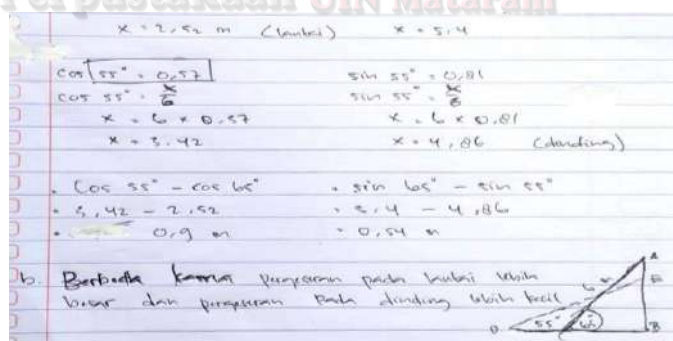 Perpustakaan UIN Mataram
x = 2,52 m (lantai) x = 5,4
cos 55° = 0,57 sin 55° = 0,81
cos 55° = x/6 sin 55° = x/6
x = 6 x 0.57 x = 6 x 0.81
x = 3.42 x = 4,86 (dinding)
• Cos 55° - cos 65° • sin 65° - sin 55°
• 3,42 - 2,52 • 5,4 - 4,86
• 0,9 m • 0,54 m
b. Berbeda karna pergeseran pada lantai lebih
besar dan pergeseran pada dinding lebih kecil
A
E
6 m
D 55° 65° B